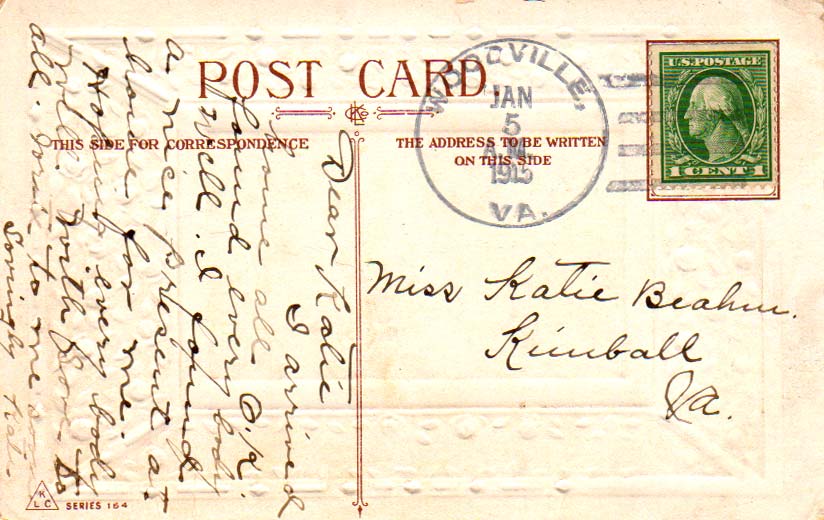 POST CARD
KLC
THIS SIDE FOR CORRESPONDENCE
THE ADDRESS TO BE WRITTEN
ON THIS SIDE
WOODVILLE,
JAN
5
A.M.
1915
VA.
U.S. POSTAGE
1 CENT 1
Dear Katie
I arrived
home all O.K.
found every body
well. I found
a nice present at
home for me.
Hoping every body
well. With love to
all. to me soon
Lovingly
Miss Katie Beahm.
Kimball
Va.
KLC
SERIES 164